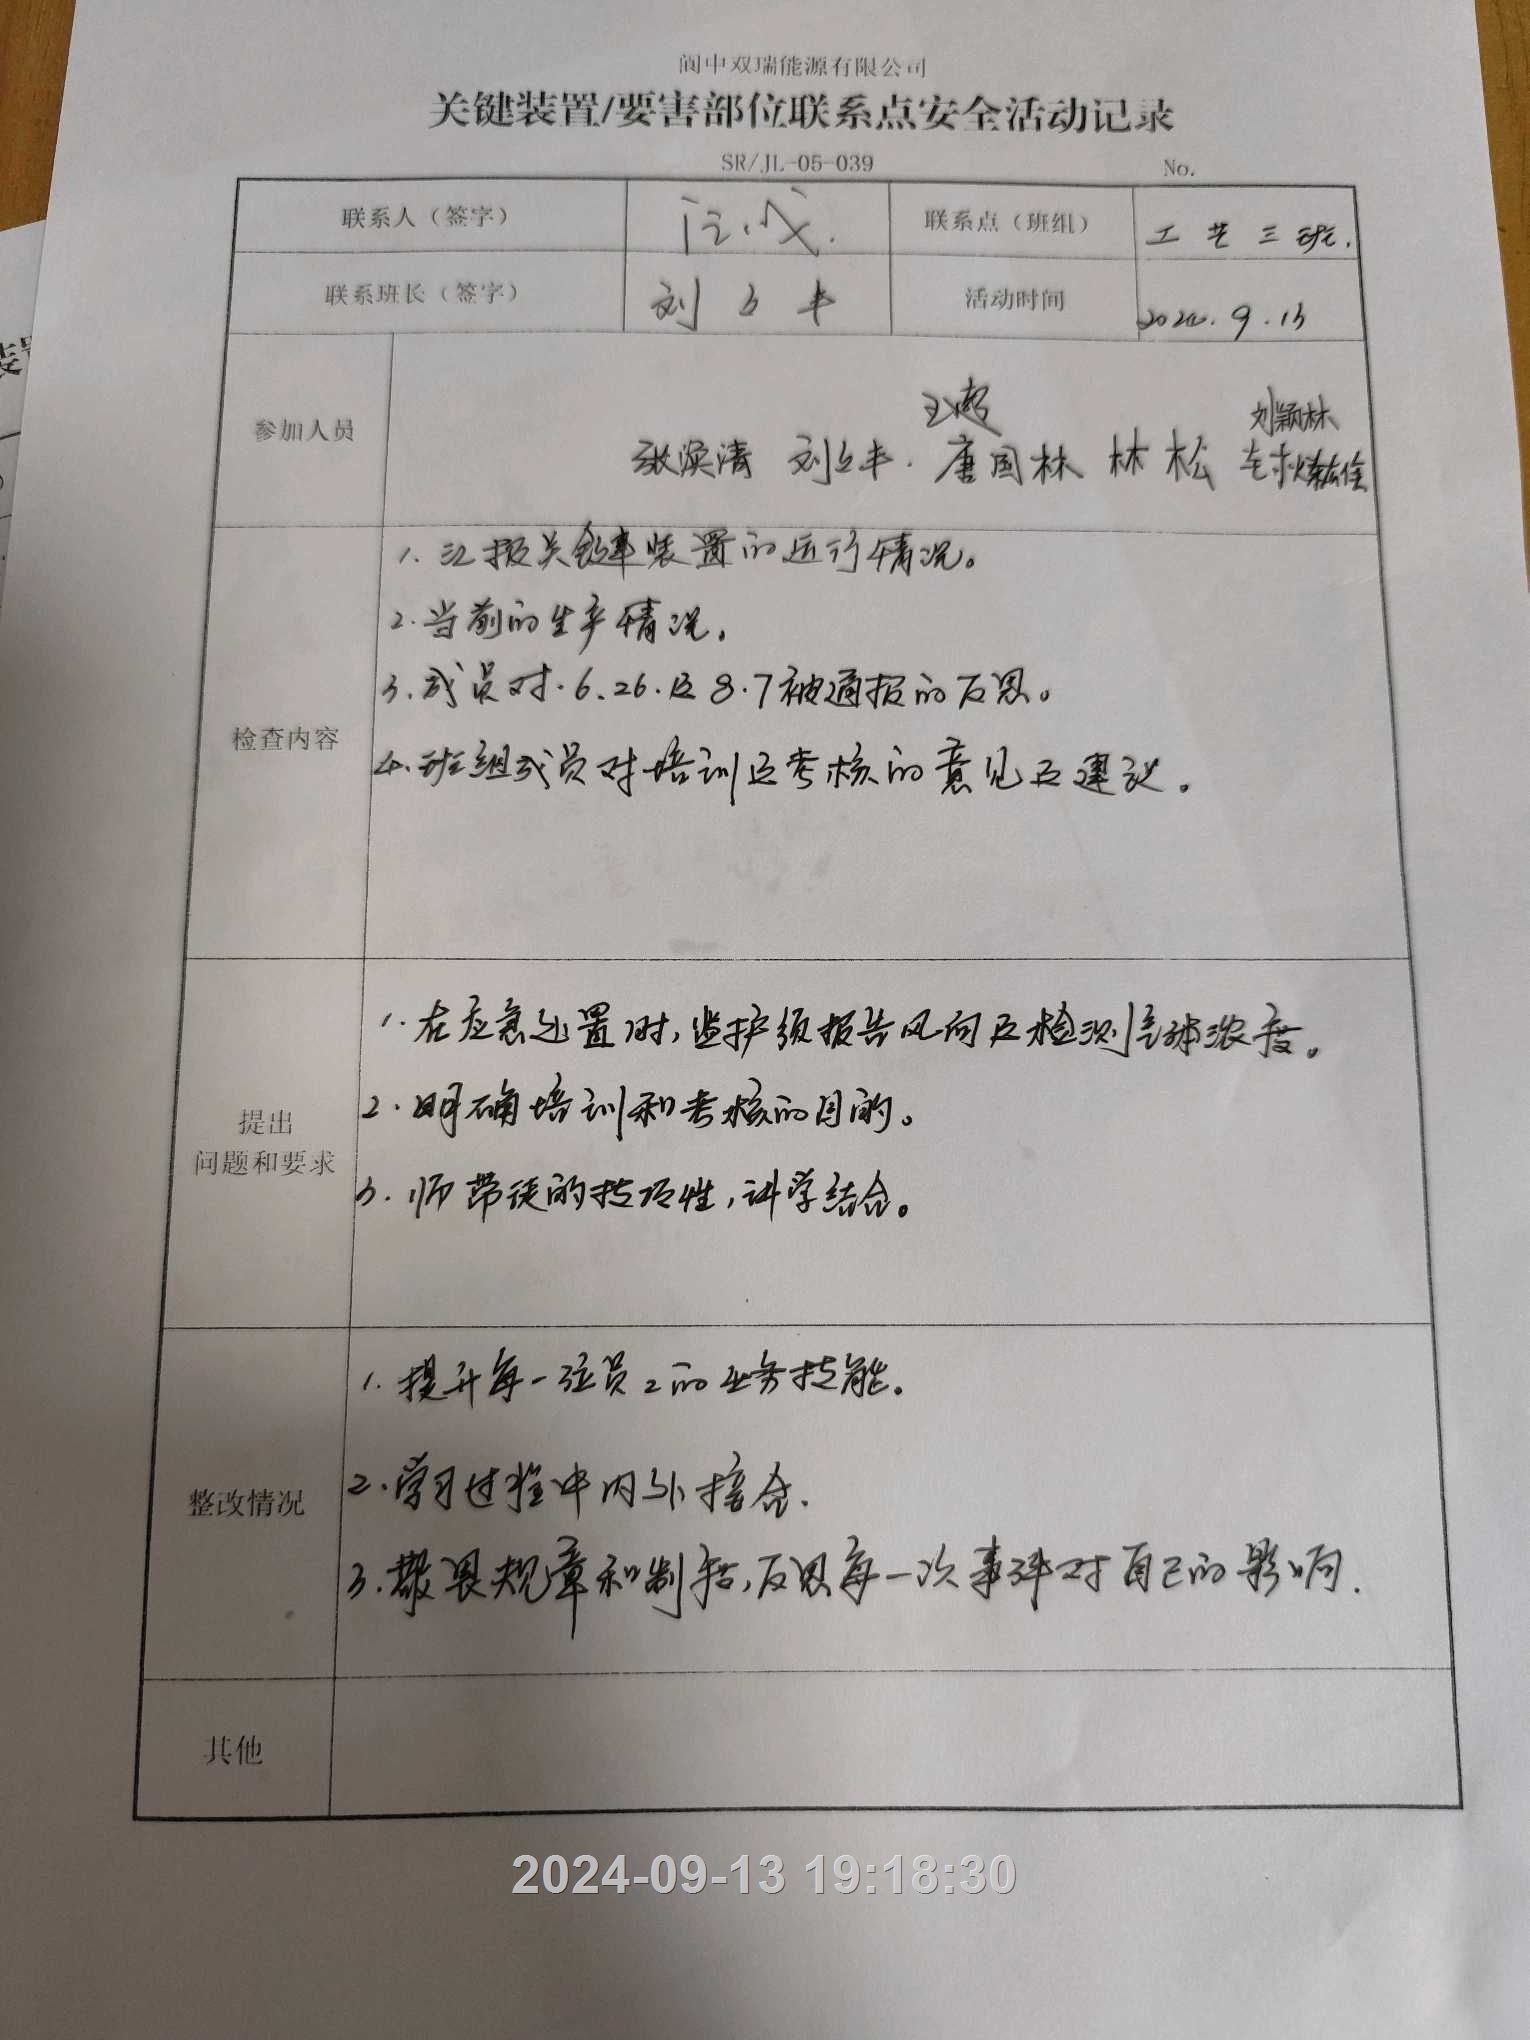 阆中双瑞能源有限公司
关键装置/要害部位联系点安全活动记录
SR/JL-05-039 No.
联系人（签字） 联系点（班组） 工艺三班.
联系班长（签字） 刘立丰 活动时间 2024.9.13
王超 刘颖林
参加人员 张焕清 刘立丰. 唐国林 林松
1. 汇报关键装置的运行情况。
2. 当前的生产情况。
3. 成员对.6.26.及8.7被通报的反思。
检查内容
4. 班组成员对培训及考核的意见及建议。
1. 在应急处置时,监护须报告风向及检测气体浓度。
提出
2. 明确培训和考核的目的。
问题和要求
3. 师带徒的技巧性,讲学结合。
1. 提升每一位员工的业务技能。
整改情况
2. 学习过程中内外结合.
3. 敬畏规章和制度,反思每一次事件对自己的影响.
其他
2024-09-13 19:18:30